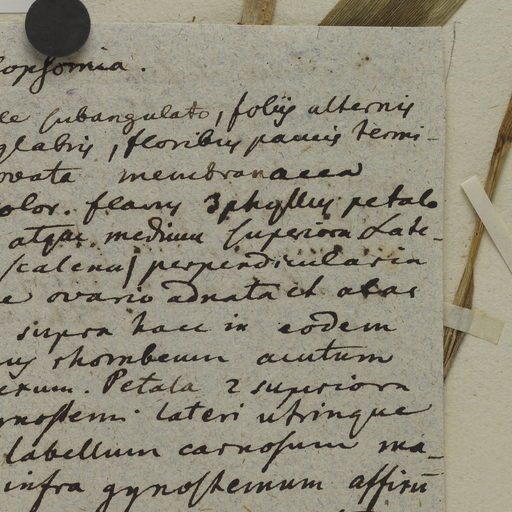 opsomia.
ce subangulato, foliis alternis
glabris, floribus paucis termi-
ovata membranacea
olor. flavus 3phyllus petalo
atque medium superiora Late-
scalena perpendicularia
e ovario adnata et alas
supra haec in eodem
us rhombeum acutum
exum. Petala 2 superiora
gynostem. lateri utrinque
labellum carnosum ma-
infra gynostemum affixū